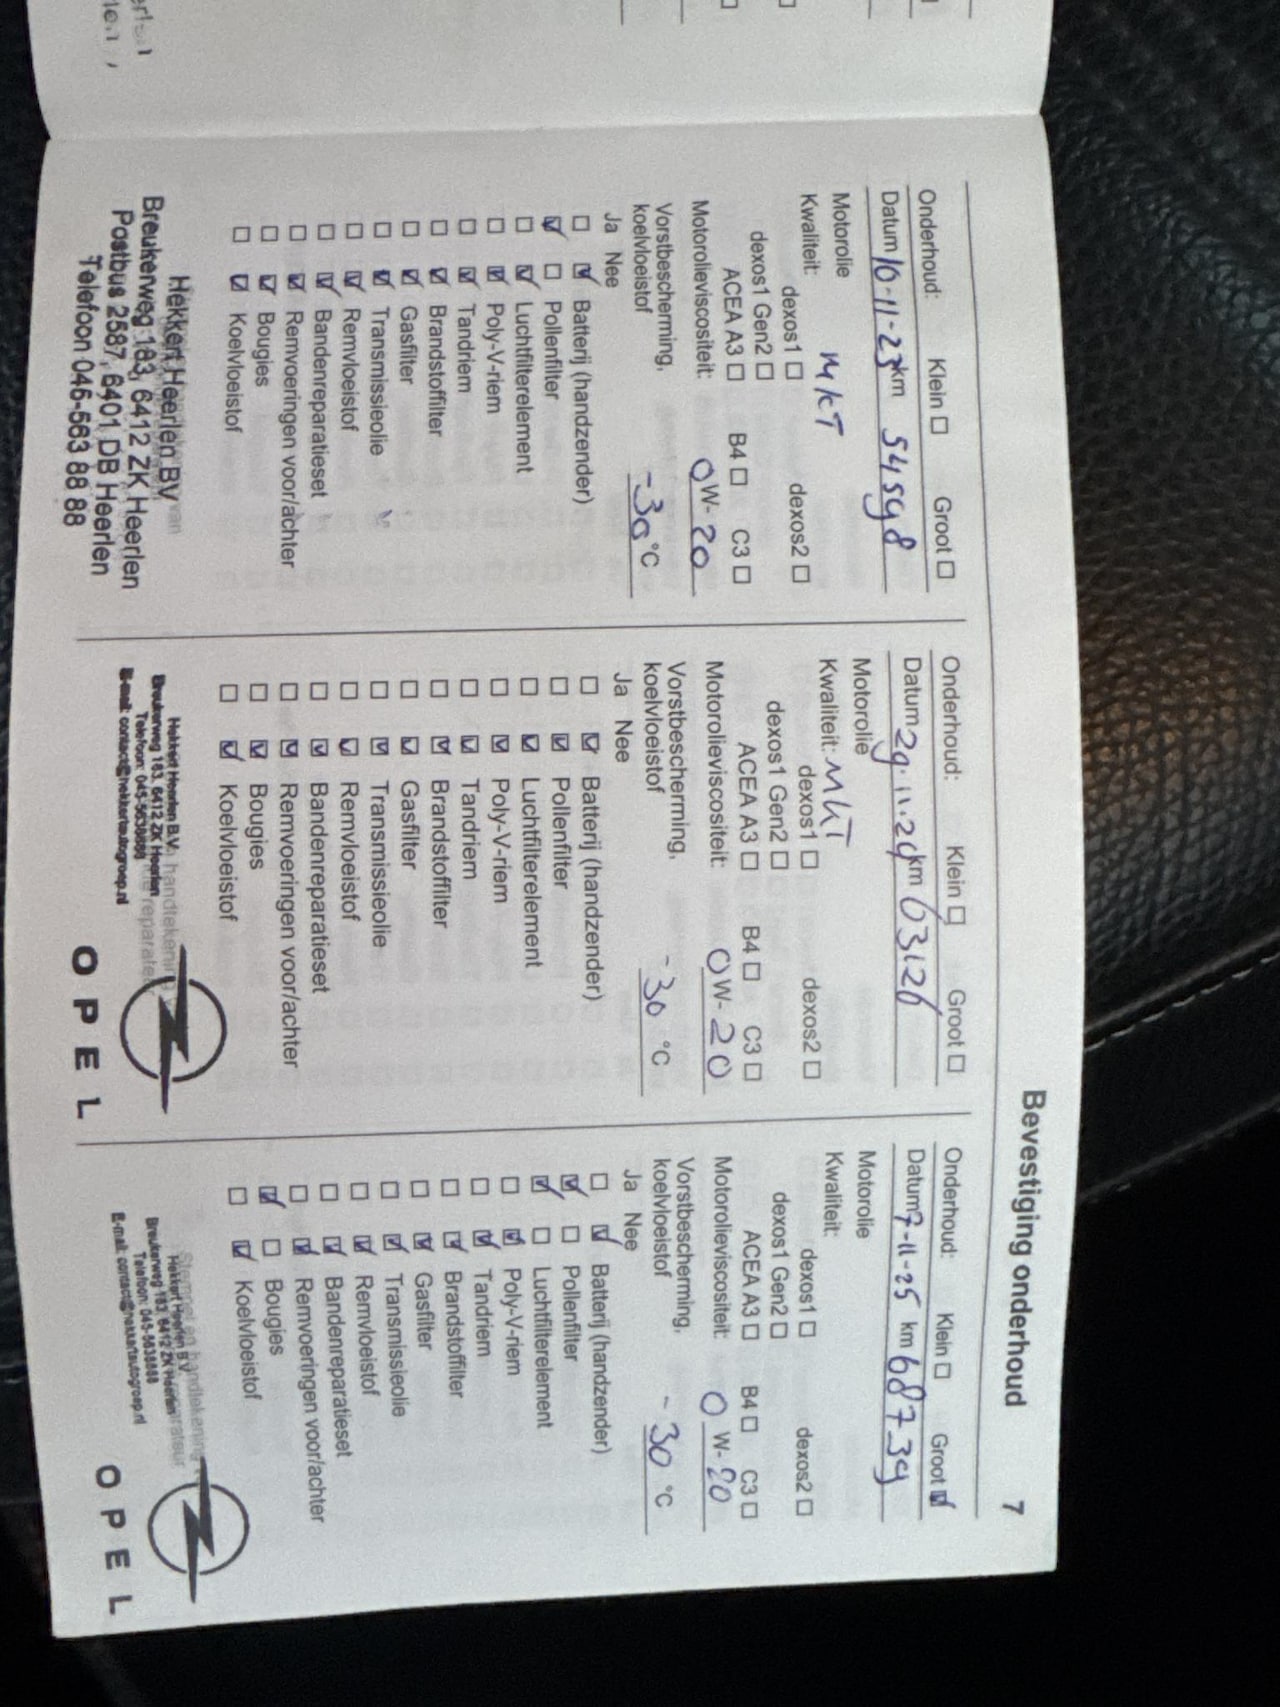 Bevestiging onderhoud 7
Onderhoud: Klein ☐ Groot ☐
Datum 10-11-23 km 54598
Motorolie
Kwaliteit: MKT
dexos1 ☐ dexos2 ☐
dexos1 Gen2 ☐
ACEA A3 ☐ B4 ☐ C3 ☐
Motorolieviscositeit: 0 W- 20
Vorstbescherming,
koelvloeistof -30 °C
Ja Nee
☐ ☑ Batterij (handzender)
☑ ☐ Pollenfilter
☐ ☑ Luchtfilterelement
☐ ☑ Poly-V-riem
☐ ☑ Tandriem
☐ ☑ Brandstoffilter
☐ ☑ Gasfilter
☐ ☑ Transmissieolie
☐ ☑ Remvloeistof
☐ ☑ Bandenreparatieset
☐ ☑ Remvoeringen voor/achter
☐ ☑ Bougies
☐ ☑ Koelvloeistof
Hekkert Heerlen BV
Breukerweg 183, 6412 ZK Heerlen
Postbus 2587, 6401 DB Heerlen
Telefoon 045-563 88 88
Onderhoud: Klein ☐ Groot ☐
Datum 29.11.24 km 63126
Motorolie
Kwaliteit: MKT
dexos1 ☐ dexos2 ☐
dexos1 Gen2 ☐
ACEA A3 ☐ B4 ☐ C3 ☐
Motorolieviscositeit: 0 W- 20
Vorstbescherming,
koelvloeistof -30 °C
Ja Nee
☐ ☑ Batterij (handzender)
☐ ☑ Pollenfilter
☐ ☑ Luchtfilterelement
☐ ☑ Poly-V-riem
☐ ☑ Tandriem
☐ ☑ Brandstoffilter
☐ ☑ Gasfilter
☐ ☑ Transmissieolie
☐ ☑ Remvloeistof
☐ ☑ Bandenreparatieset
☐ ☑ Remvoeringen voor/achter
☐ ☑ Bougies
☐ ☑ Koelvloeistof
Hekkert Heerlen B.V.
Breukerweg 183, 6412 ZK Heerlen
Telefoon: 045-5638888
E-mail: contact@hekkertautogroep.nl
OPEL
Onderhoud: Klein ☐ Groot ☑
Datum 7-11-25 km 68739
Motorolie
Kwaliteit:
dexos1 ☐ dexos2 ☐
dexos1 Gen2 ☐
ACEA A3 ☐ B4 ☐ C3 ☐
Motorolieviscositeit: 0 W- 20
Vorstbescherming,
koelvloeistof -30 °C
Ja Nee
☐ ☑ Batterij (handzender)
☑ ☐ Pollenfilter
☑ ☐ Luchtfilterelement
☐ ☑ Poly-V-riem
☐ ☑ Tandriem
☐ ☑ Brandstoffilter
☐ ☑ Gasfilter
☐ ☑ Transmissieolie
☐ ☑ Remvloeistof
☐ ☑ Bandenreparatieset
☐ ☑ Remvoeringen voor/achter
☑ ☐ Bougies
☐ ☑ Koelvloeistof
Stempel en handtekening
Hekkert Heerlen B.V.
Breukerweg 183, 6412 ZK Heerlen
Telefoon: 045-5638888
E-mail: contact@hekkertautogroep.nl
OPEL